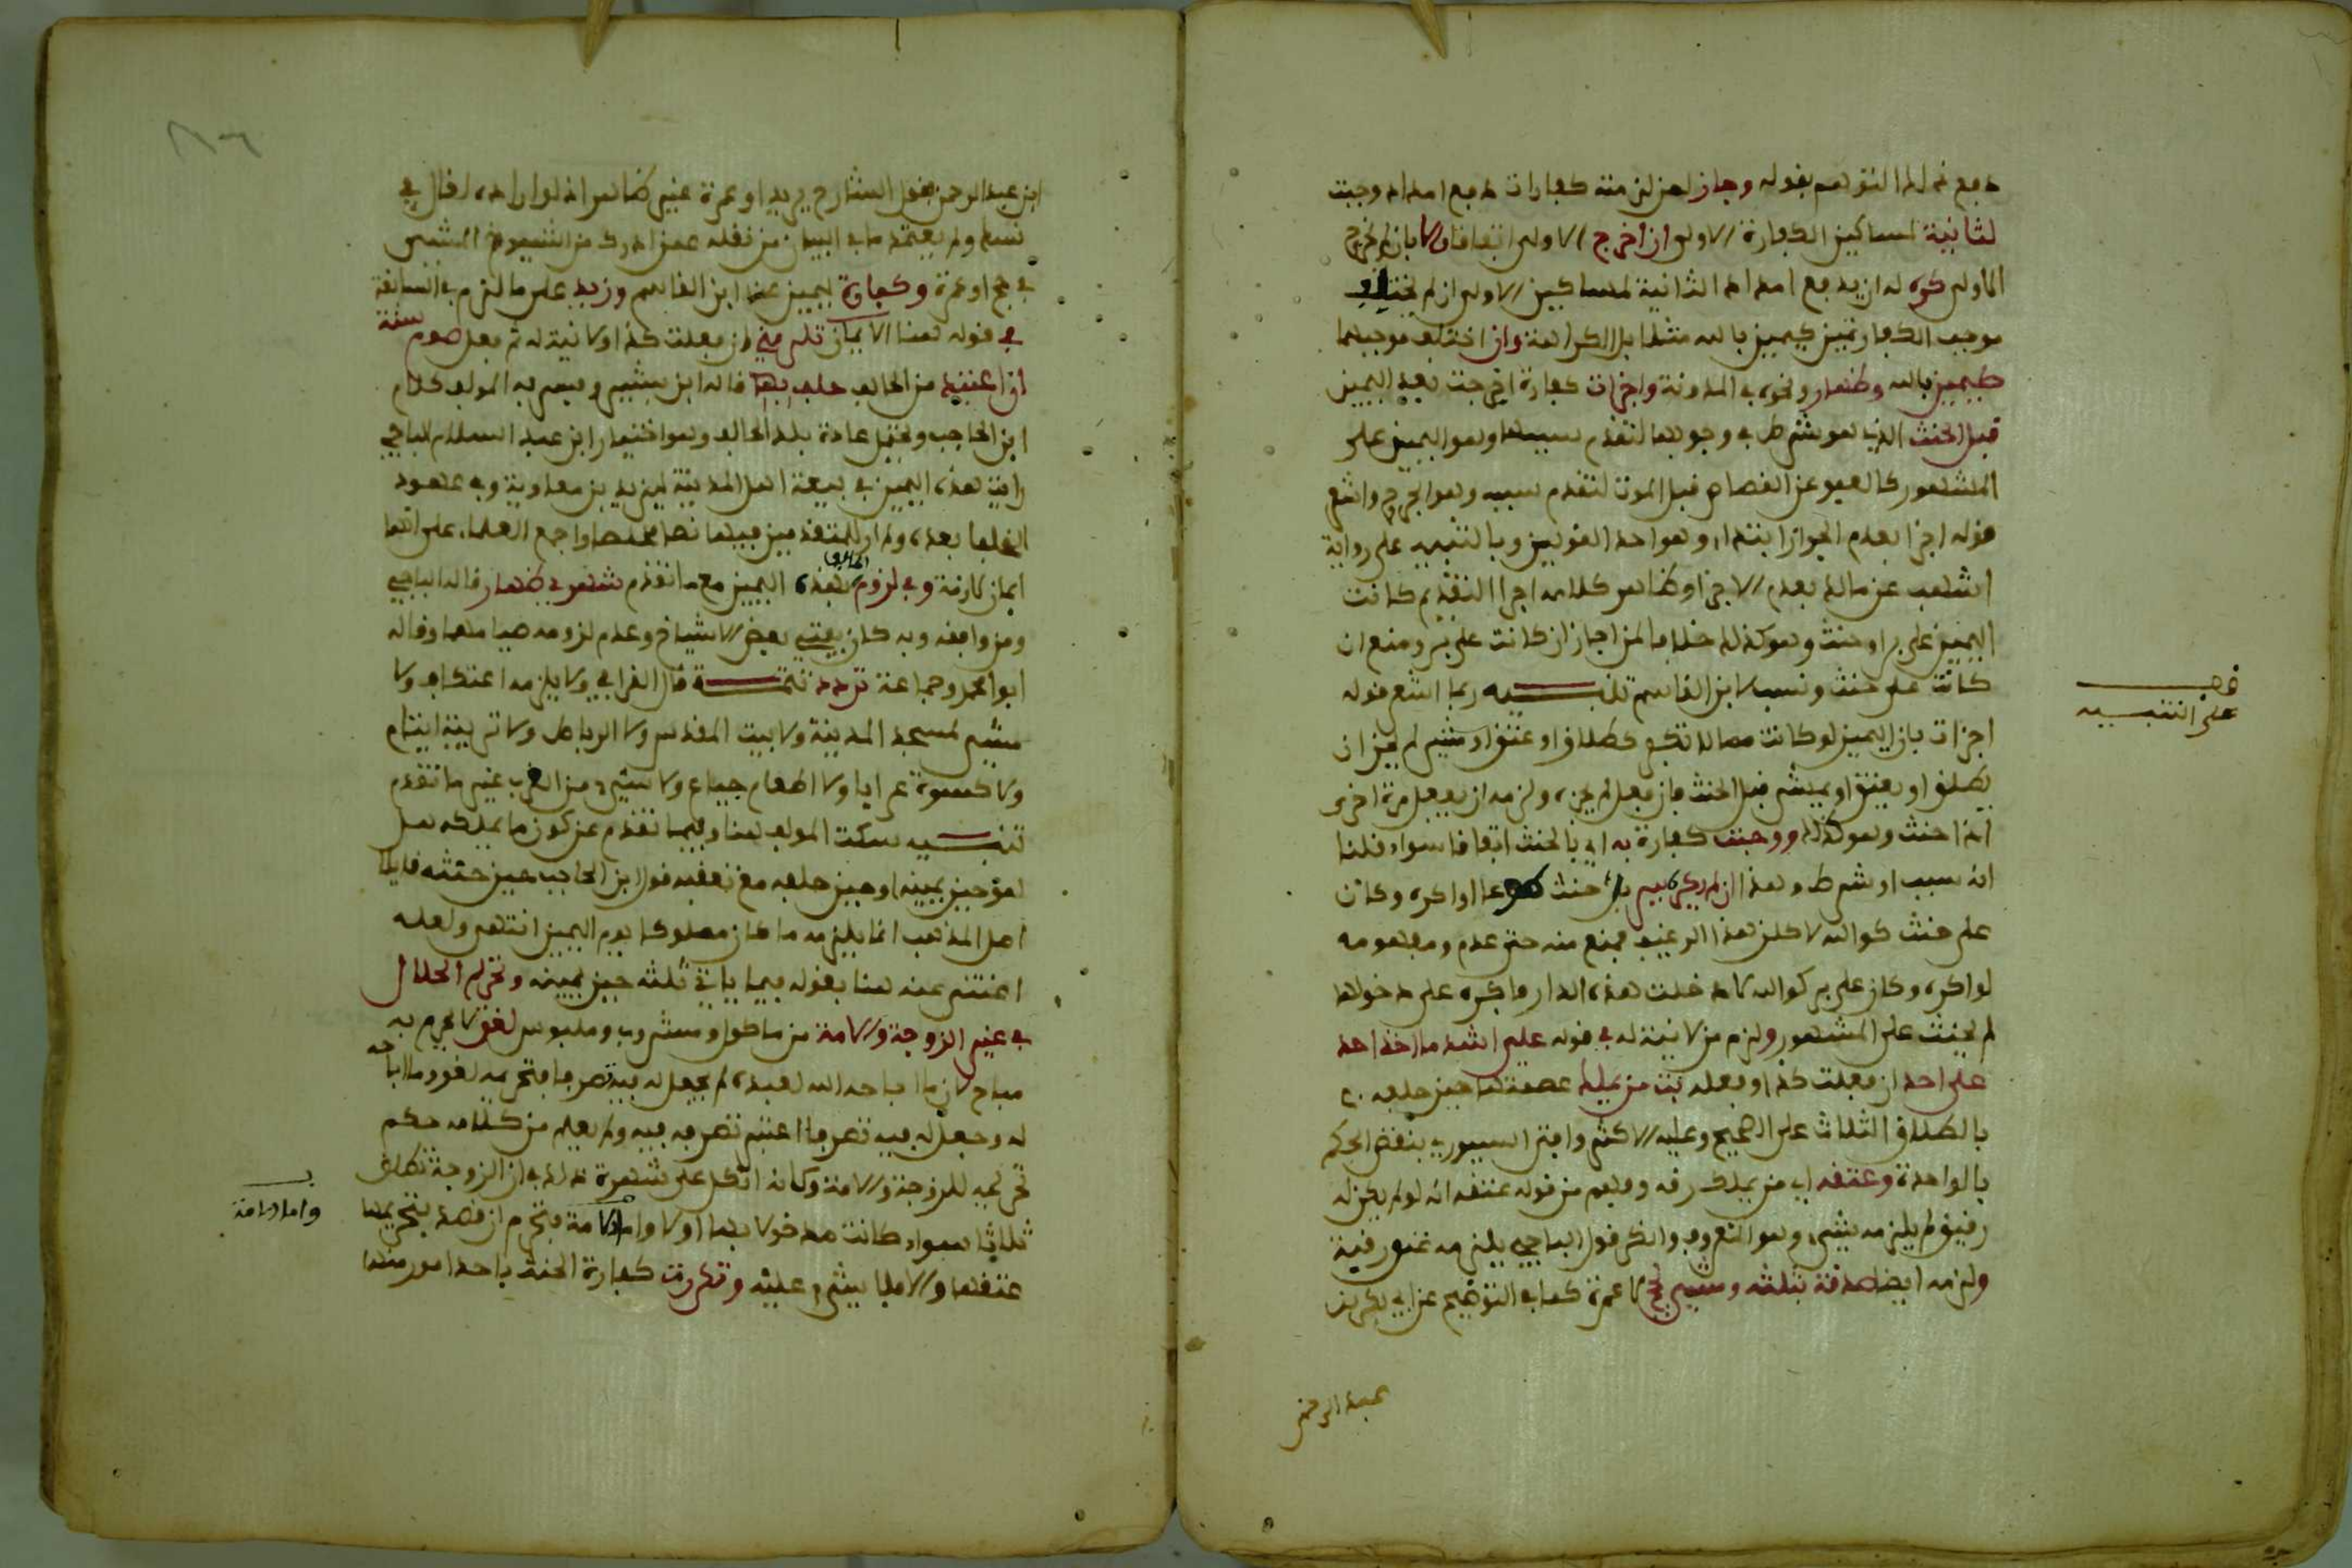 دفع ذلك التوهم بقوله وجاز لمن لزمته كفارات دفع امداد وجبت
لثانية لمساكين الكفارة الاولى ان اخرج الاولى اتفاقا والا بان لم يخرج
الاولى كره له ان يدفع امداد الثانية لمساكين الاولى ان لم يختلف
موجب الكفارتين كيمين بالله مثلا بل الكراهة وان اختلف موجبهما
كيمين بالله وظهار ونحوه في المدونة واجزات كفارة اخرجت بعد اليمين
قبل الحنث الذي هو شرط في وجوبها لتقدم سببها وهو اليمين على
المشهور كالعفو عن القصاص قبل الموت لتقدم سببه وهو الجرح واشعر
قوله اجزا بعدم الجواز ابتداء وهو احد القولين وبالتنبيه على رواية
اشهب عن مالك بعدم الاجزا وظاهر كلامه اجزا التقديم كانت
اليمين على بر او حنث وهو كذلك خلافا لمن اجاز ان كانت على بر ومنع ان
كانت على حنث ونسب لابن القاسم تنبيه ربما اشعر قوله
اجزات بان اليمين لو كانت مما لا تكفر كطلاق او عتق او مشي لم يجز ان
يطلق او يعتق او يمشي قبل الحنث فان فعل لم يجزه ولزمه ان يفعل مرة اخرى
اذا حنث وهو كذلك ووجبت كفارة به اي بالحنث اتفاقا سواء قلنا
انه سبب او شرط وهذا ان لم يكره ببر بل حنث طوعا او اكره وكان
على حنث كوالله لاكلن هذا الرغيف فمنع منه حتى عدم ومفهومه
لو اكره وكان على بر كوالله لا دخلت هذه الدار فاكره على دخولها
لم يحنث على المشهور ولزم من لا نية له في قوله علي اشد ما اخذ احد
على احد ان فعلت كذا وفعله بت من يملك عصمتها حين حلفه
بالطلاق الثلاث على الصحيح وعليه الاكثر وافتى السيوري بنقض الحكم
بالواحدة وعتقه اي من يملك رقه وفهم من قوله عتقه انه لو لم يكن له
رقيق لم يلزمه شيء وهو المعروف وانكر قول الباجي يلزمه عتق رقبة
ولزمه ايضا صدقة بثلثه ومشي بحج لا عمرة كما في التوضيح عن ابي بكر بن
عبد الرحمن
قف
على التنبيه
ابن عبد الرحمن فقول الشارح يريد او عمرة غير ظاهر اذ لو اراده لقال في
نسك ولم يعتمد ما في البيان من نقله عمن ادرك من الشيوخ المشي
في حج او عمرة وكفارة ليمين عند ابن القاسم وزيد على ما لزم في السابقة
في قوله هنا الايمان تلزمني ان فعلت كذا ولا نية له ثم فعل صوم سنة
ان اعتيد من الحالف حلف بها قاله ابن بشير وفسر به المولف كلام
ابن الحاجب ويحتمل عادة بلد الحالف وهو اختيار ابن عبد السلام الباجي
رايت هذه اليمين في بيعة اهل المدينة ليزيد بن معاوية وفي عهود
الخلفا بعده ولم ار للمتقدمين فيها نصا مخلصا واجمع العلماء على انها
ايمان لازمة وفي لزوم الحالف بهذه اليمين مع ما تقدم شهري ظهار قاله الباجي
ومن وافقه وبه كان يفتي بعض الاشياخ وعدم لزومه صيامهما وقاله
ابو محمد وجماعة تردد تتمة قال القرافي ولا يلزمه اعتكاف ولا
مشي لمسجد المدينة ولا بيت المقدس ولا الرباط ولا تربية ايتام
ولا كسوة عرايا ولا اطعام جياع ولا شيء من القرب غير ما تقدم
تنبيه سكت المولف هنا وفيما تقدم عن كون ما يملكه هل
هو حين يمينه او حين حلفه مع تعقبه قول ابن الحاجب حين حنثه قايلا
اهل المذهب انما يلزمه ما كان مملوكا يوم اليمين انتهى ولعله
اغتنى عنه هنا بقوله فيما ياتي ثلثه حين يمينه وتحريم الحلال
في غير الزوجة والامة من ماكول ومشروب وملبوس لغو لا يحرم به
مباح لان ما اباحه الله لعبده لم يجعل له فيه تصرفا فتحريمه لغو وما اباحه
له وجعل له فيه تصرفا اعتبر تصرفه فيه ولم يعلم من كلامه حكم
تحريمه للزوجة والامة وكانه اتكل على شهرة ذلك في ان الزوجة تطلق
ثلاثا سواء كانت مدخولا بها او لا واما الامة فتحرم ان قصد بتحريمها
عتقها والا فلا شيء عليه وتكررت كفارة الحنث باحد امور منها
واما الامة